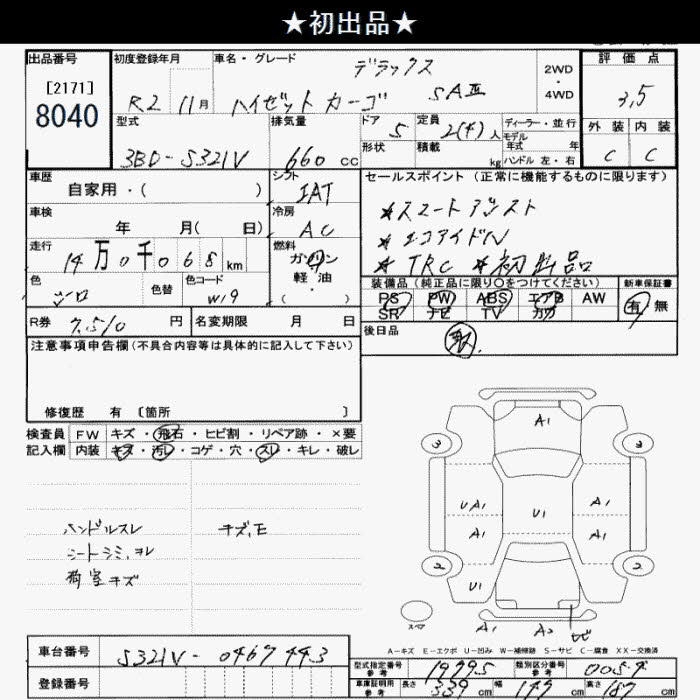 ★初出品★
出品番号 初度登録年月 車名・グレード デラックス 2WD・4WD 評価点
[2171] R2 11月 ハイゼット カーゴ SAⅢ 3,5
8040
型式 排気量 ドア 5 定員 2(4)人 ディーラー・並行 外装 内装
モデル年式 年
3BD-S321V 660 CC 形状 積載 kg ハンドル 左・右 C C
車歴 シフト セールスポイント（正常に機能するものに限ります）
自家用・( ) IAT
車検 冷房 ★スマートアシスト
年 月( 日) AC ★エコアイドル
走行 燃料 ★TRC ★初出品
14万0千068km ガソリン
色 色替 色コード 軽油 装備品（純正品に限り○をつけてください） 新車保証書
シロ W19 ( ) PS PW ABS エアB AW 有 無
SR ナビ TV カワ
R券 7,510円 名変期限 月 日 後日品
注意事項申告欄（不具合内容等は具体的に記入して下さい）
修復歴 有 〔箇所 〕
検査員 FW キズ・飛石・ヒビ割・リペア跡・×要
記入欄 内装 キズ・汚レ・コゲ・穴・スレ・キレ・破レ
A1
3 3
ハンドルスレ キズ,E UA1 A1
シートシミ,ヨレ A1 U1 A1
荷室キズ
3 3
U1
スペア A1 A2 ヒビ
A-キズ E-エクボ U-凹み W-補修跡 S-サビ C-腐食 XX-交換済
車台番号 S321V-0467443 型式指定番号 参考 19795 類別区分番号 参考 0054
登録番号 車庫証明用 参考 長さ 339 cm 幅 147 cm 高さ 187 cm